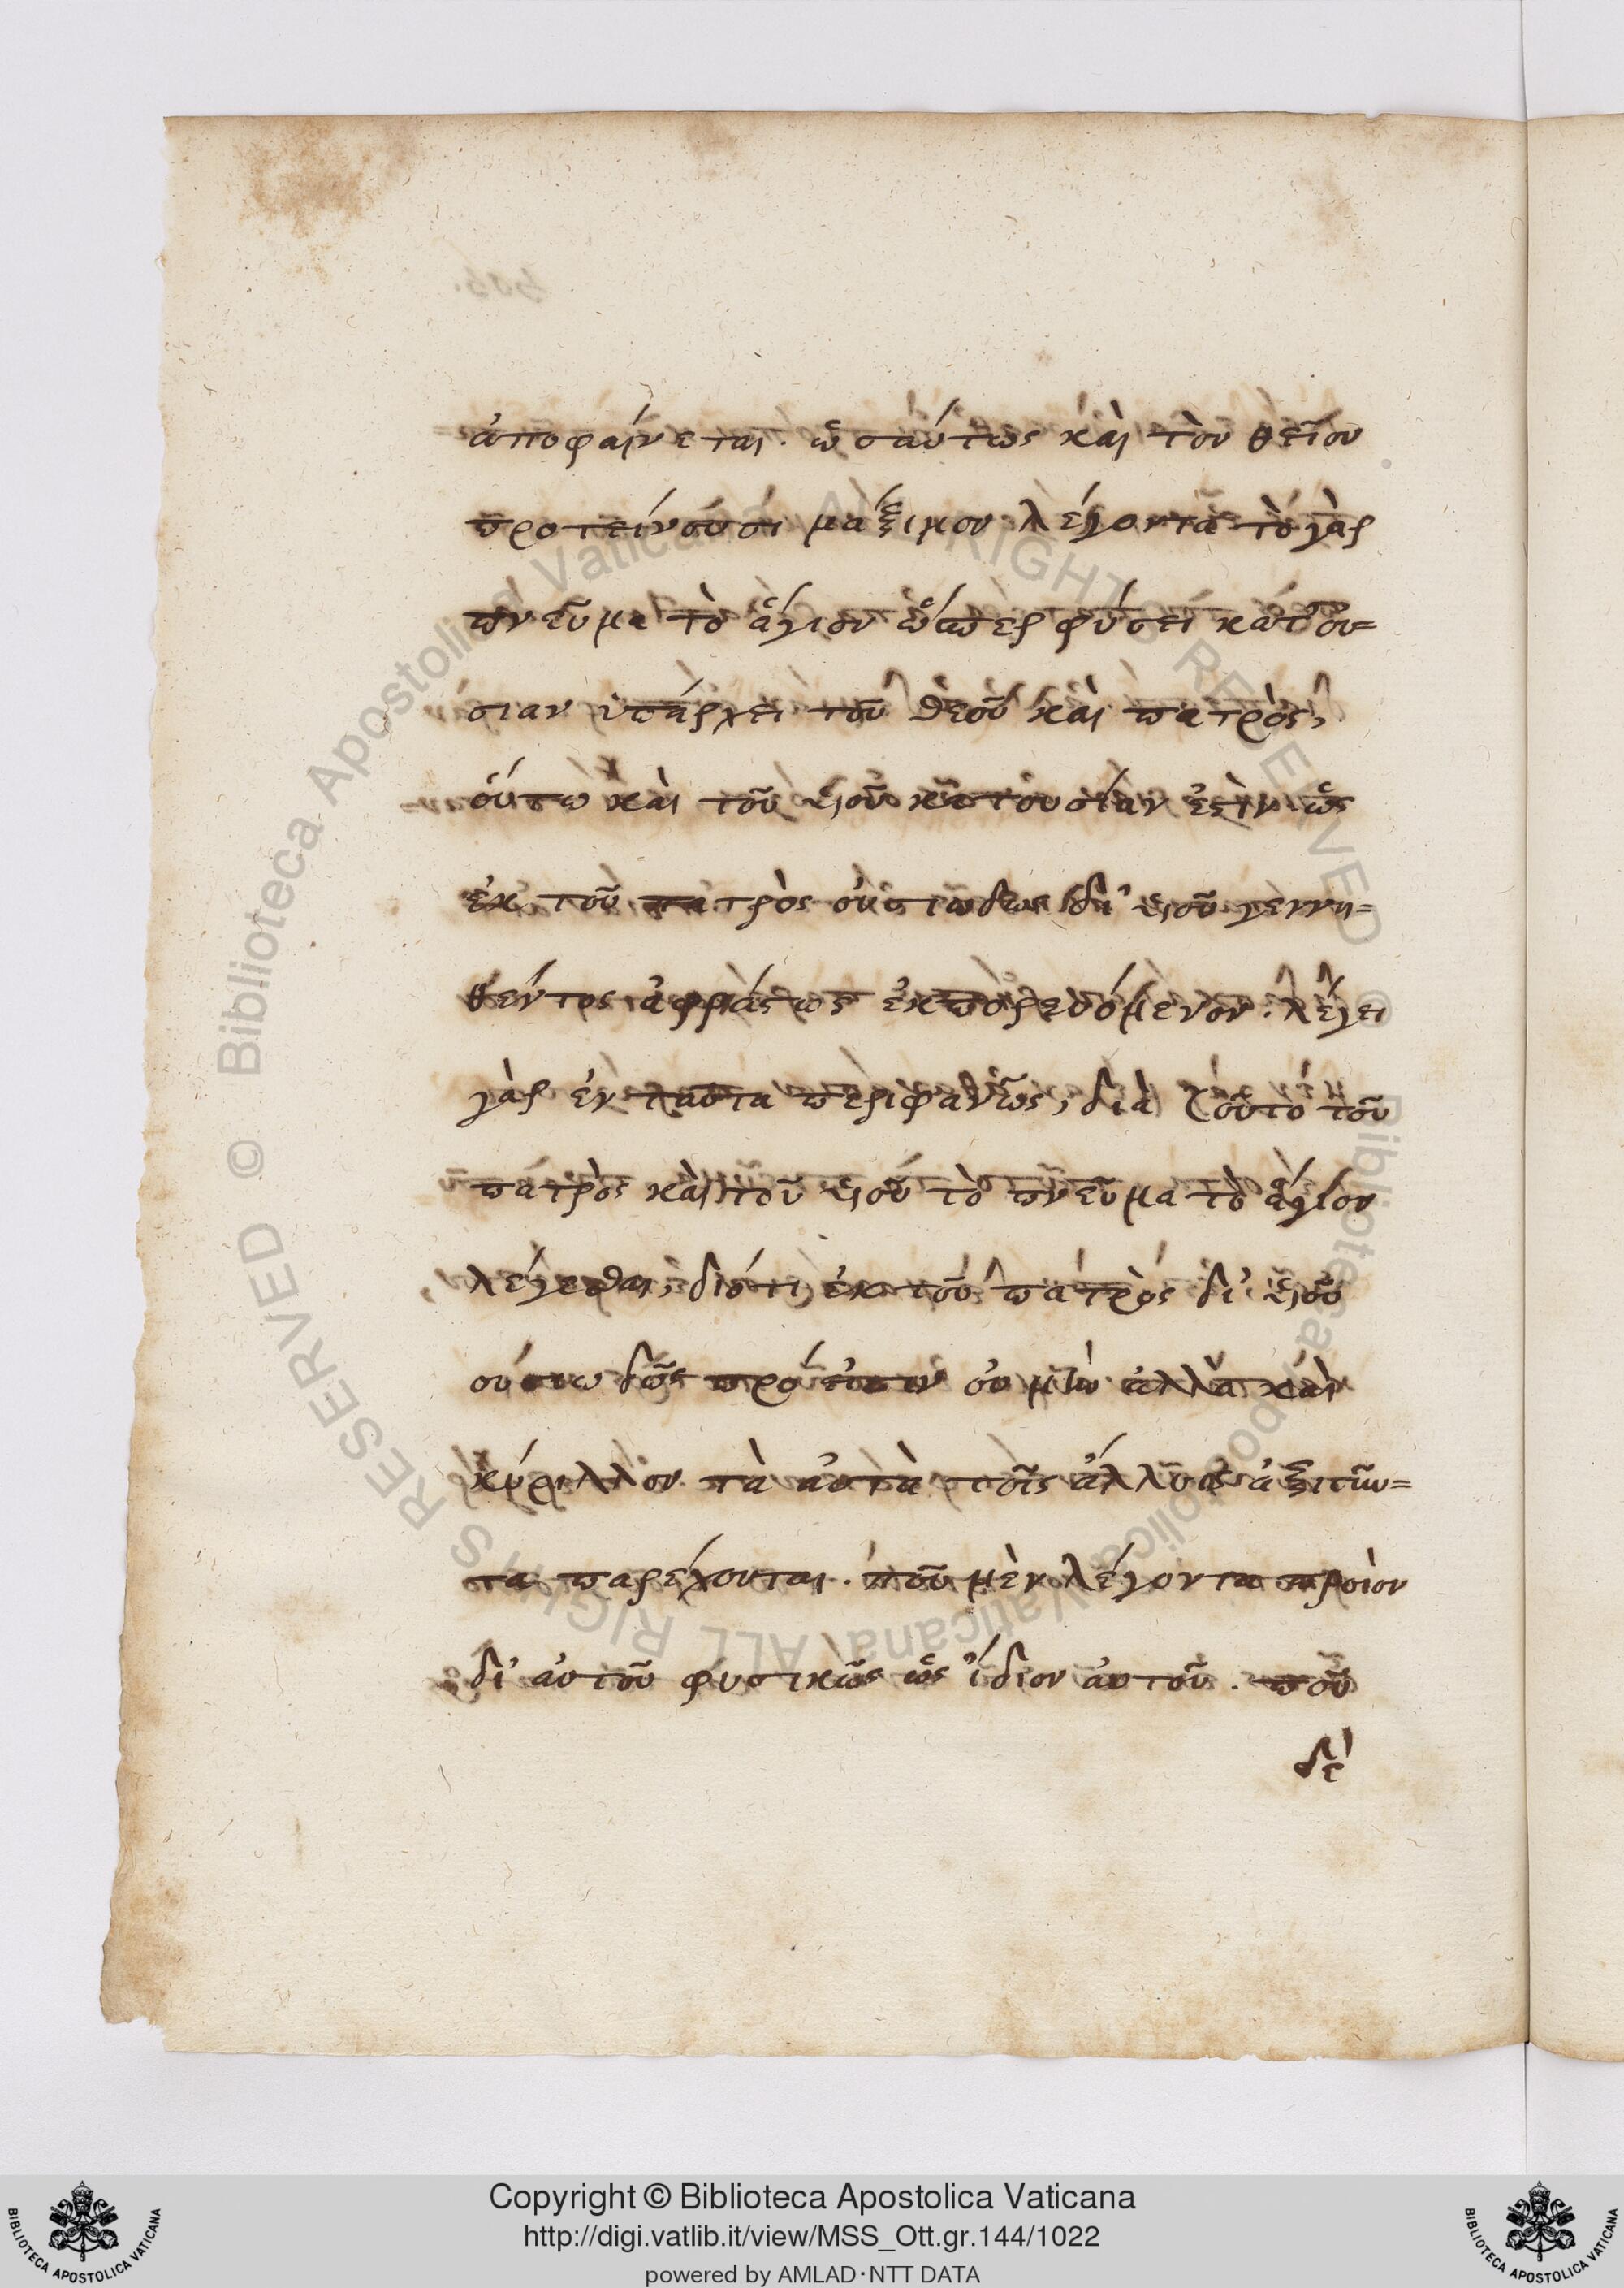 ἀποφαίνεται. ὡσαύτως καὶ τὸν θεῖον
προτείνουσι μάξιμον λέγοντα τὸ γὰρ
πνεῦμα τὸ ἅγιον ὥσπερ φύσει κατ' οὐ=
σίαν ὑπάρχει τοῦ θεοῦ καὶ πατρὸς,
οὕτω καὶ τοῦ υἱοῦ κατ' οὐσίαν ἐστὶν ὡς
ἐκ τοῦ πατρὸς οὐσιωδῶς δι' υἱοῦ γεννη=
θέντος ἀφράστως ἐκπορευόμενον. λέγει
γὰρ ἐνταῦτα περιφανῶς, διὰ τοῦτο τοῦ
πατρὸς καὶ τοῦ υἱοῦ τὸ πνεῦμα τὸ ἅγιον
λέγεσθαι, διότι ἐκ τοῦ πατρὸς δι' υἱοῦ
οὐσιωδῶς πρόεισιν οὐ μὴν ἀλλὰ καὶ
κύριλλον τὰ αὐτὰ τοῖς ἄλλοις ἀξιοῦν=
τα παρέχονται. ποῦ μὲν λέγοντα προϊὸν
δι' αὐτοῦ φυσικῶς ὡς ἴδιον αὐτοῦ. ποῦ
δὲ
Copyright © Biblioteca Apostolica Vaticana
http://digi.vatlib.it/view/MSS_Ott.gr.144/1022
powered by AMLAD·NTT DATA